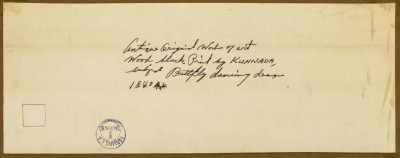 Antique Original Work of art
Wood block Print by KUNISADA,
subject Buttfly dancing dress
1840